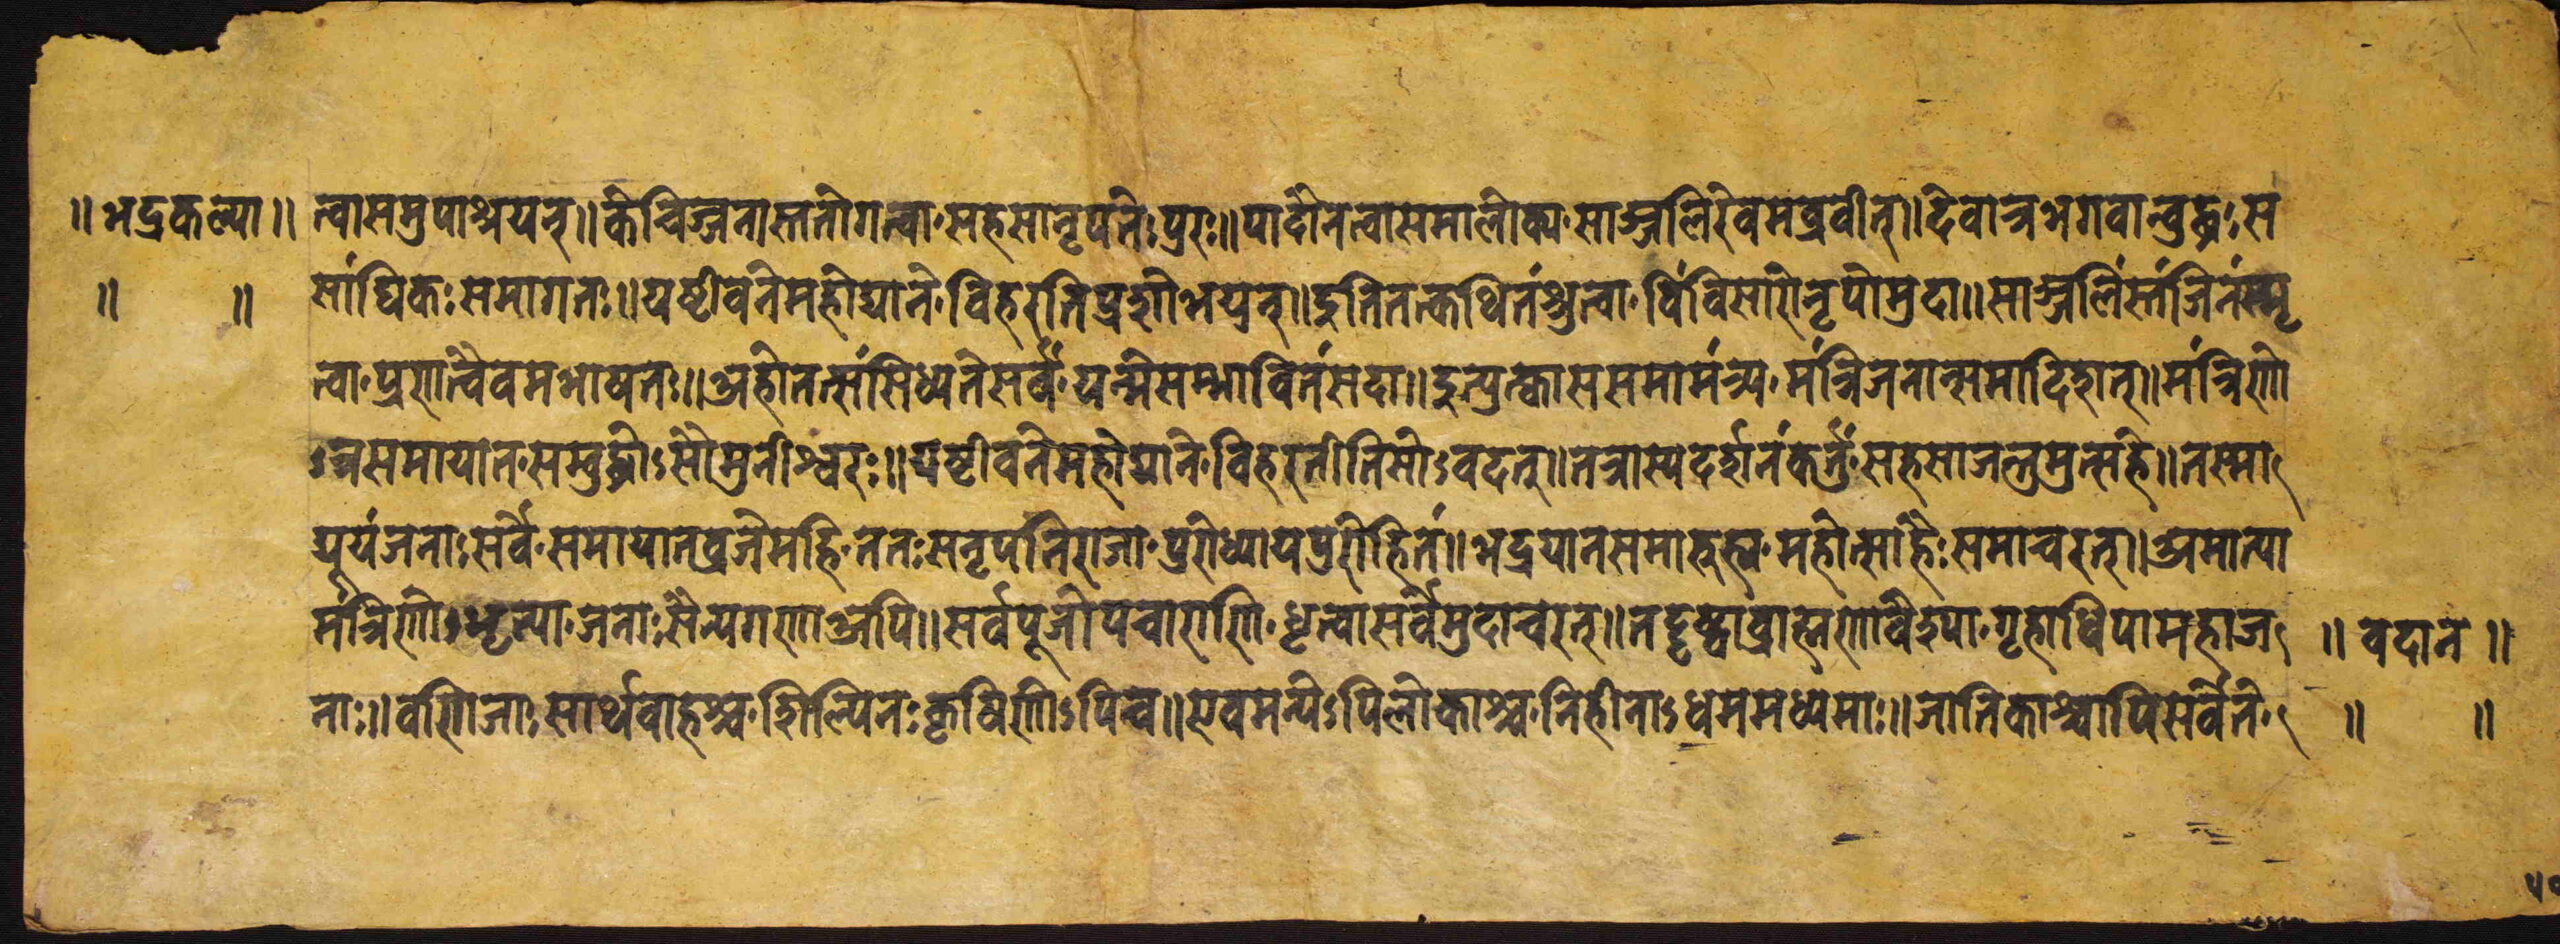 ॥ भद्रकल्पा ॥ त्वासमुपाश्रयन्॥केचिज्जनास्ततोगत्वा·सहसानृपतेःपुरः॥पादौनत्वासमालोक्य·साञ्जलिरेवमब्रवीत्॥देवात्रभगवान्बुद्धःस
॥ ॥ सांघिकःसमागतः॥यष्टीवनेमहोद्याने·विहरतिप्रशोभयन्॥इतितत्कथितंश्रुत्वा·विंविसारोनृपोमुदा॥साञ्जलिस्तंजिनंस्मृ
त्वा·प्रणत्वैवमभाषतः॥अहोतत्संसिध्यतेसर्वं·यन्मेसम्भावितंसदा॥इत्युत्क्वाससमामंत्र्य·मंत्रिजनान्समादिशत्॥मंत्रिणो
ऽत्रसमायात·सम्बुद्धोऽसौमुनीश्वरः॥यष्टीवनेमहोद्याने·विहरतीतिसोऽवदत्॥तत्रास्यदर्शनंकर्तुं·सहसाजन्तुमुत्सहे॥तस्मा
द्यूयंजनाःसर्वे·समायातव्रजेमहि·ततःसनृपतिराजा·पुरोध्यायपुरोहितं॥भद्रयानसमारुह्य·महोत्साहैःसमाचरत्॥अमात्या
मंत्रिणोऽभृत्या·जनाःसैन्यगणाअपि॥सर्वपूजोपचाराणि·धृत्वासर्वेमुदाचरन्॥तद्दृष्ट्वाब्राह्मणावैश्या·गृहाधिपामहाज ॥ वदान ॥
नाः॥वणिजाःसार्थवाहश्च·शिल्पिनःकृषिणोऽपिच॥एवमन्येऽपिलोकाश्च·निहीनाऽधममध्यमाः॥जानिकाश्चापिसर्वेते· ॥ ॥